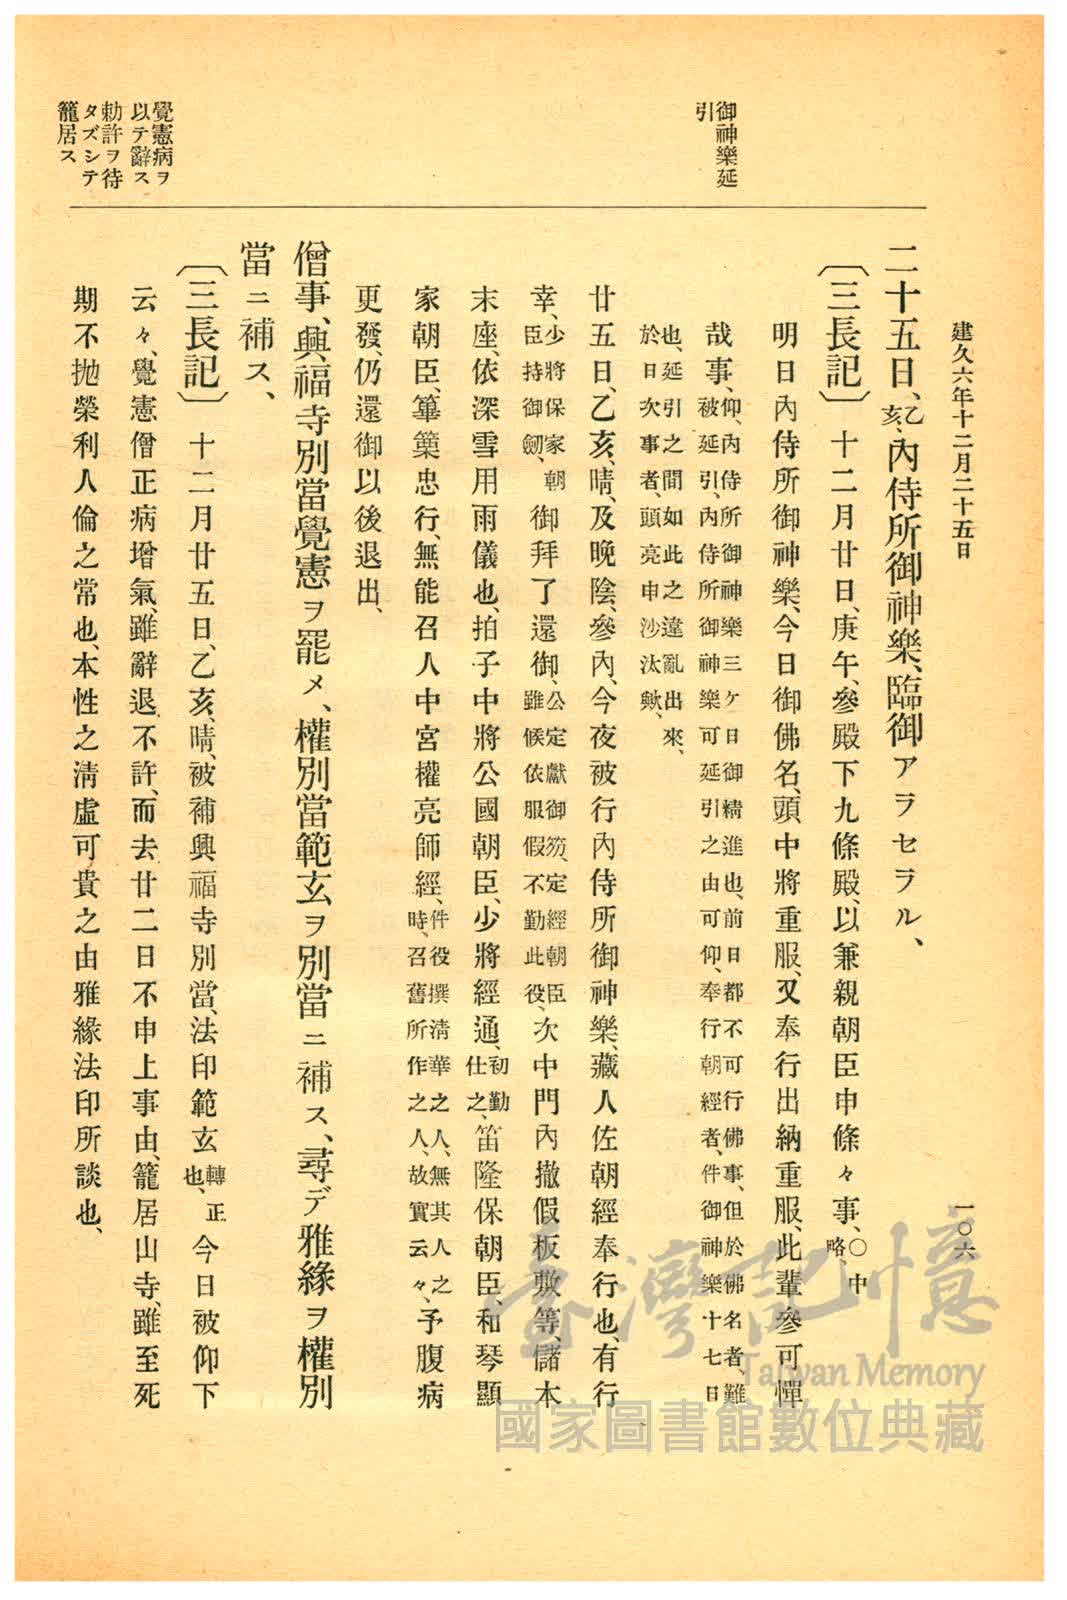 建久六年十二月二十五日
一〇六
御神樂延
引
覺憲病ヲ
以テ辭ス
勅許ヲ待
タズシテ
籠居ス
二十五日、乙亥、內侍所御神樂、臨御アラセラル、
〔三長記〕 十二月廿日、庚午、參殿下九條殿、以兼親朝臣申條々事、〇中略、
明日內侍所御神樂、今日御佛名、頭中將重服、又奉行出納重服、此輩參可憚
哉事、仰、內侍所御神樂三ヶ日御精進也、前日都不可行佛事、但於佛名者、難
被延引、內侍所御神樂可延引之由可仰、奉行朝經者、件御神樂十七日
也、延引之間如此之違亂出來、
於日次事者、頭亮申沙汰歟、
廿五日、乙亥、晴、及晚陰、參內、今夜被行內侍所御神樂、藏人佐朝經奉行也、有行
幸、少將保家朝臣持御劒、御拜了還御、公定獻御笏、定經朝臣雖候依服假不勤此役、次中門內撤假板敷等、儲本
末座、依深雪用雨儀也、拍子中將公國朝臣、少將經通、初勤仕之、笛隆保朝臣、和琴顯
家朝臣、篳篥忠行、無能召人中宮權亮師經、件役撰淸華之人、無其人之時、召舊所作之人、故實云々、予腹病
更發、仍還御以後退出、
僧事、興福寺別當覺憲ヲ罷メ、權別當範玄ヲ別當ニ補ス、尋デ雅緣ヲ權別
當ニ補ス、
〔三長記〕 十二月廿五日、乙亥、晴、被補興福寺別當、法印範玄轉正也、今日被仰下
云々、覺憲僧正病增氣、雖辭退不許、而去廿二日不申上事由、籠居山寺、雖至死
期不抛榮利人倫之常也、本性之淸虛可貴之由雅緣法印所談也、
臺灣記憶
Taiwan Memory
國家圖書館數位典藏